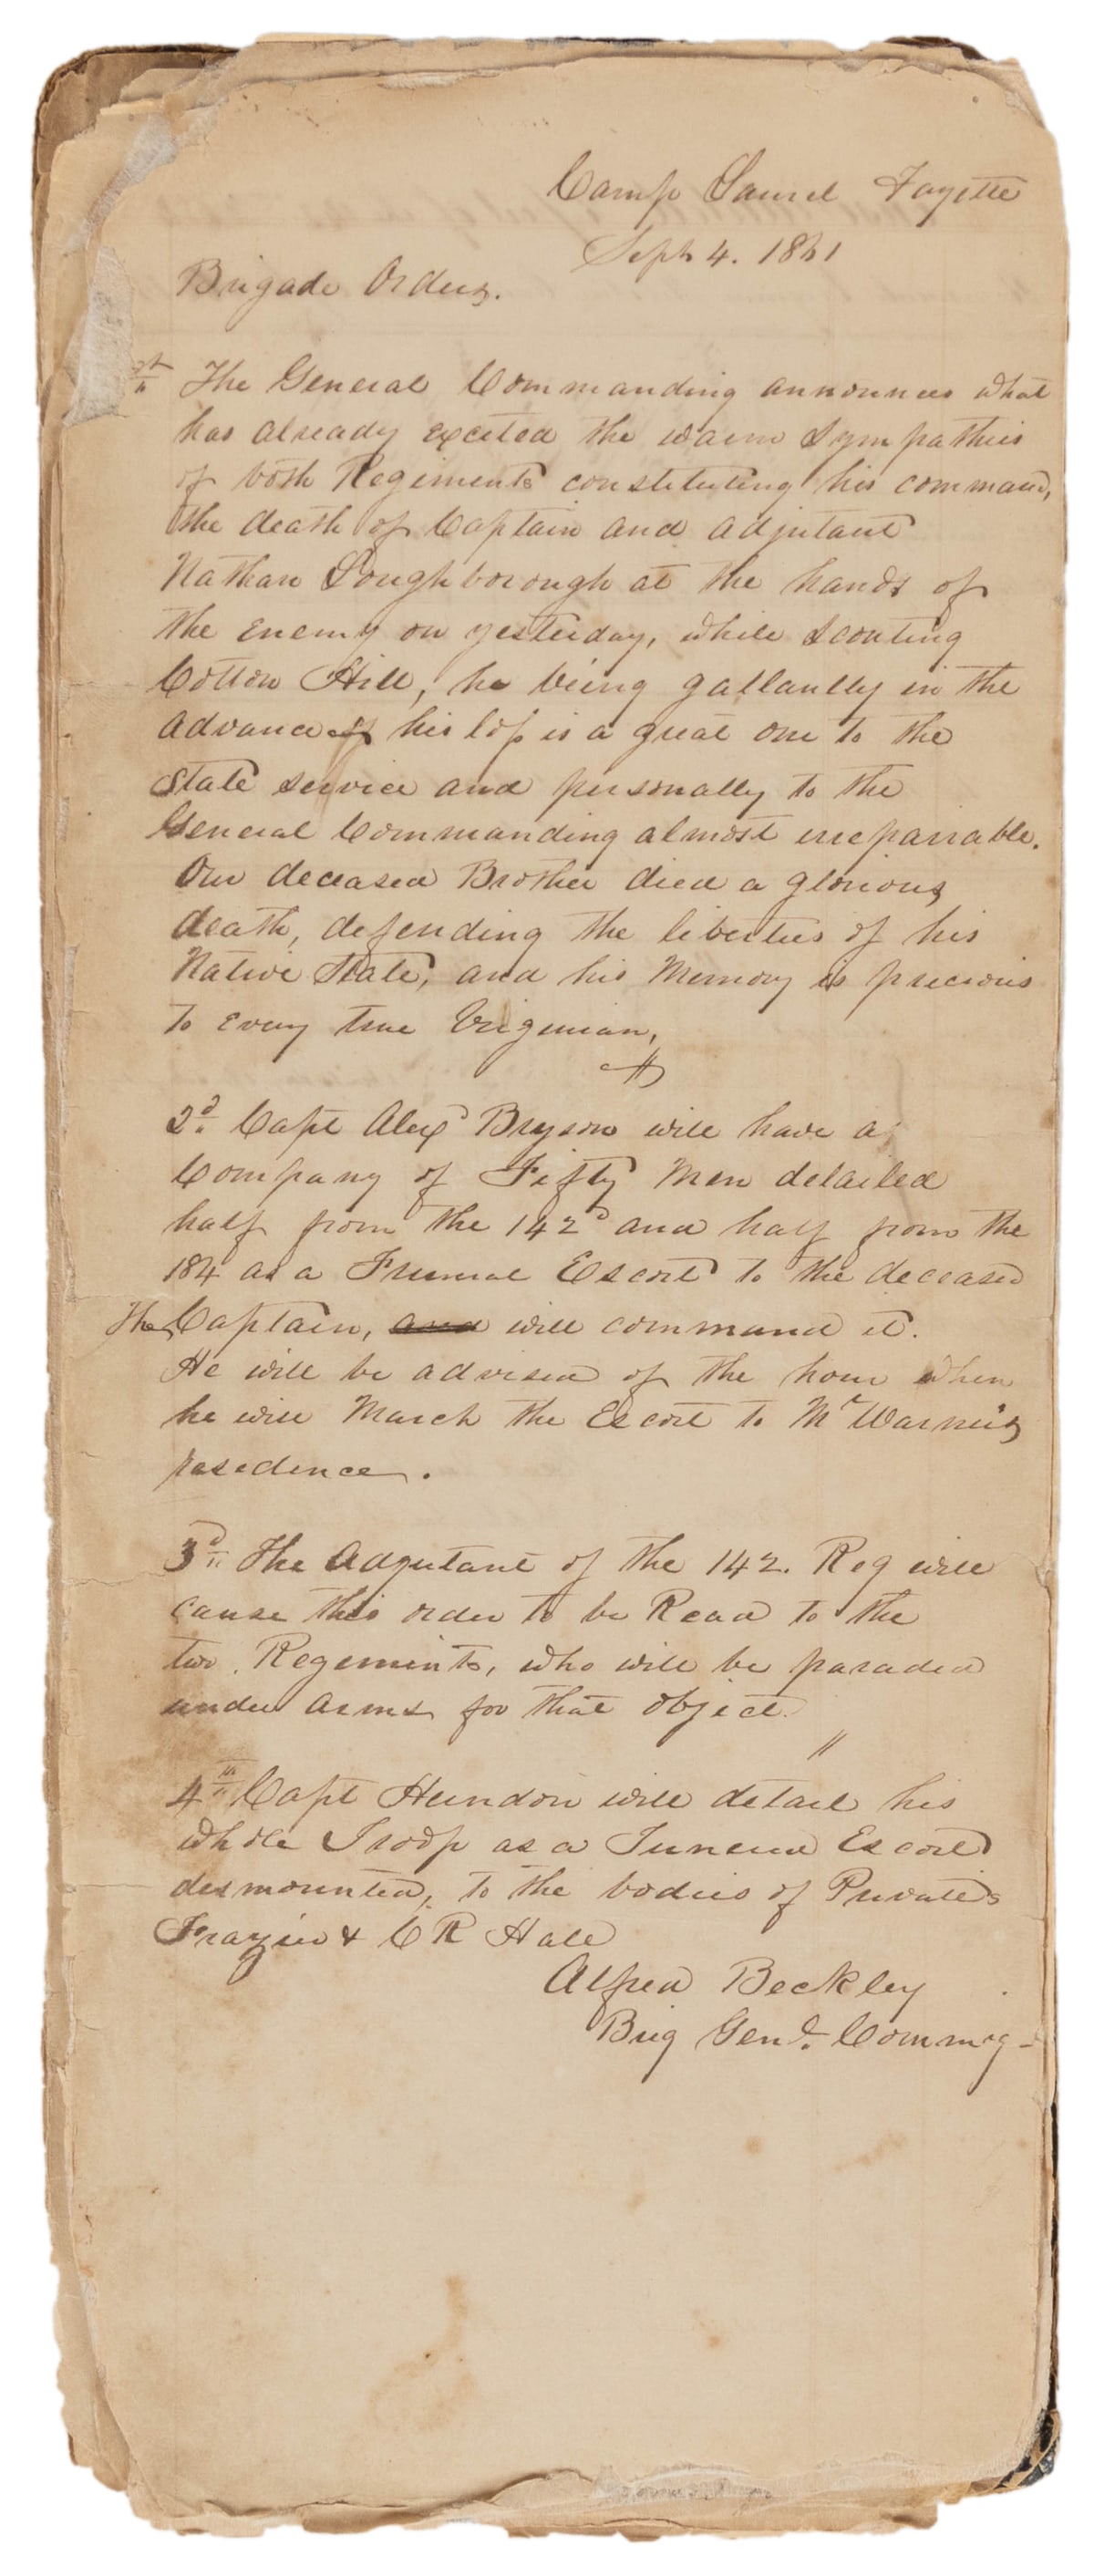 Camp Laurel Fayette
Sept 4. 1861
Brigade Orders.
st The General Commanding announces what
has already excited the warm Sympathies
of both Regiments constituting his command,
the death of Captain and adjutant
Nathan Loughborough at the hands of
the Enemy on yesterday, while Scouting
Cotton Hill, he being gallantly in the
advance of his loss is a great one to the
State service and personally to the
General Commanding almost irreparrable.
Our deceased Brother died a glorious
death, defending the liberties of his
Native State, and his Memory is precious
to Every true Virginian,
2d Capt Alexd Bryson will have a
Company of Fifty Men detailed
half from the 142d and half from the
184 as a Funeral Escort to the deceased
The Captain, and will command it.
He will be advised of the hour when
he will March the Escort to Mr Warner's
residence.
3d The Adjutant of the 142. Reg will
cause this order to be Read to the
two Regements, who will be paraded
under arms for that object.
4th Capt Herndon will detail his
whole Troop as a Funeral Escort
dismounted, to the bodies of Privates
Frazier & C R Hale
Alfred Beckley
Brig Genl. Commg